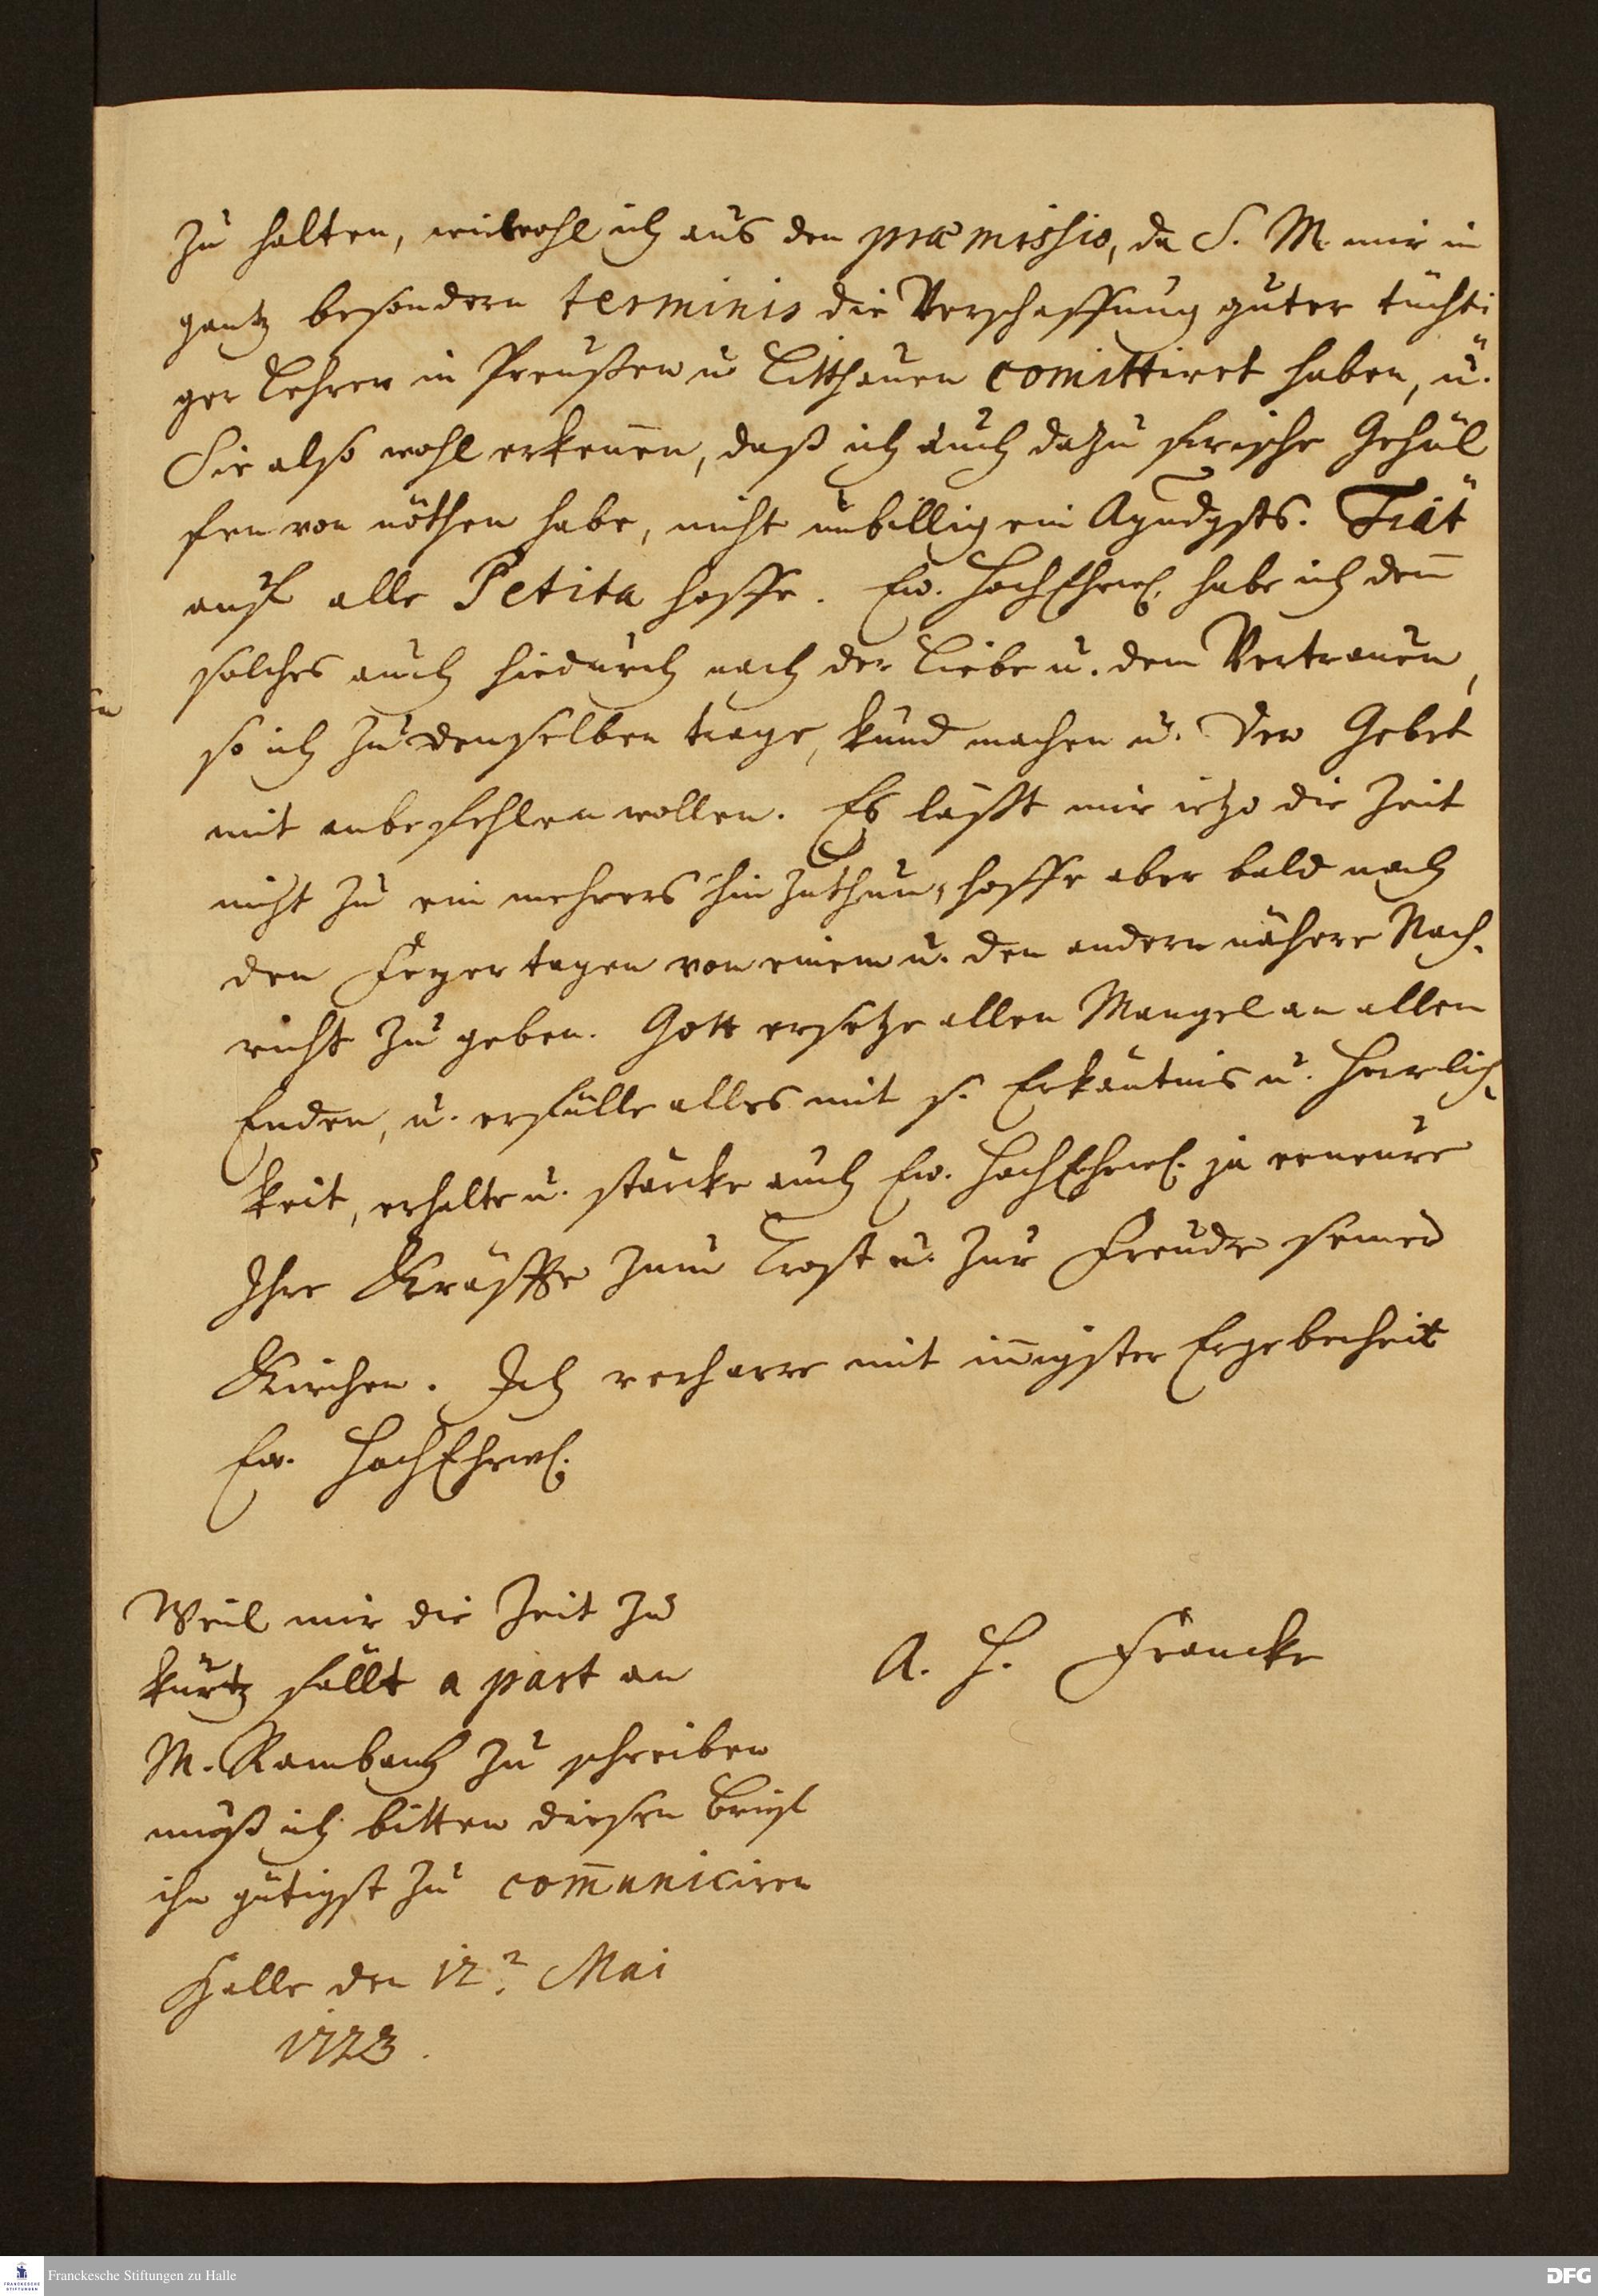 zu halten, wiewohl ich aus den præmissis, da S. M. mir in
gantz besondern terminis die Verschaffung guter tüchti
ger Lehrer in Preußen u Litthauen comittiret haben, u.
Sie also wohl erkeñen, daß ich auch dazu frische Gehül
fen von nöthen habe, nicht unbillig ein "Fiat"
auf alle Petita hoffe. Ew. HochEhrw. habe ich deñ
solches auch hiedurch nach der Liebe u. dem Vertrauen,
so ich zu denselben trage, kund machen u. Dero Gebet
mit anbefehlen wollen. Es läßt mir ietzo die Zeit
nicht zu ein mehrers hin zuthun, hoffe aber bald nach
den Feyertagen von einem u. den andern nähere Nach-
richt zu geben. Gott ersetze allen Mangel an allen
Enden, u. erfülle alles mit s. Erkäntnis u. Herrlich-
keit, erhalte u. stärcke auch Ew. HochEhrw. ja erneure
Ihre Kräffte zum Trost u. zur Freude seiner
Kirchen. Ich verharre mit iñigster Ergebenheit
Ew. HochEhrw.
A. H. Francke
Weil mir die Zeit zu
kurtz fällt a part an
M. Rambach zu schreiben
muß ich bitten diesen Brief
ihn gütigst zu com̄uniciren
Halle den 12. Mai
1723.
Franckesche Stiftungen zu Halle
DFG